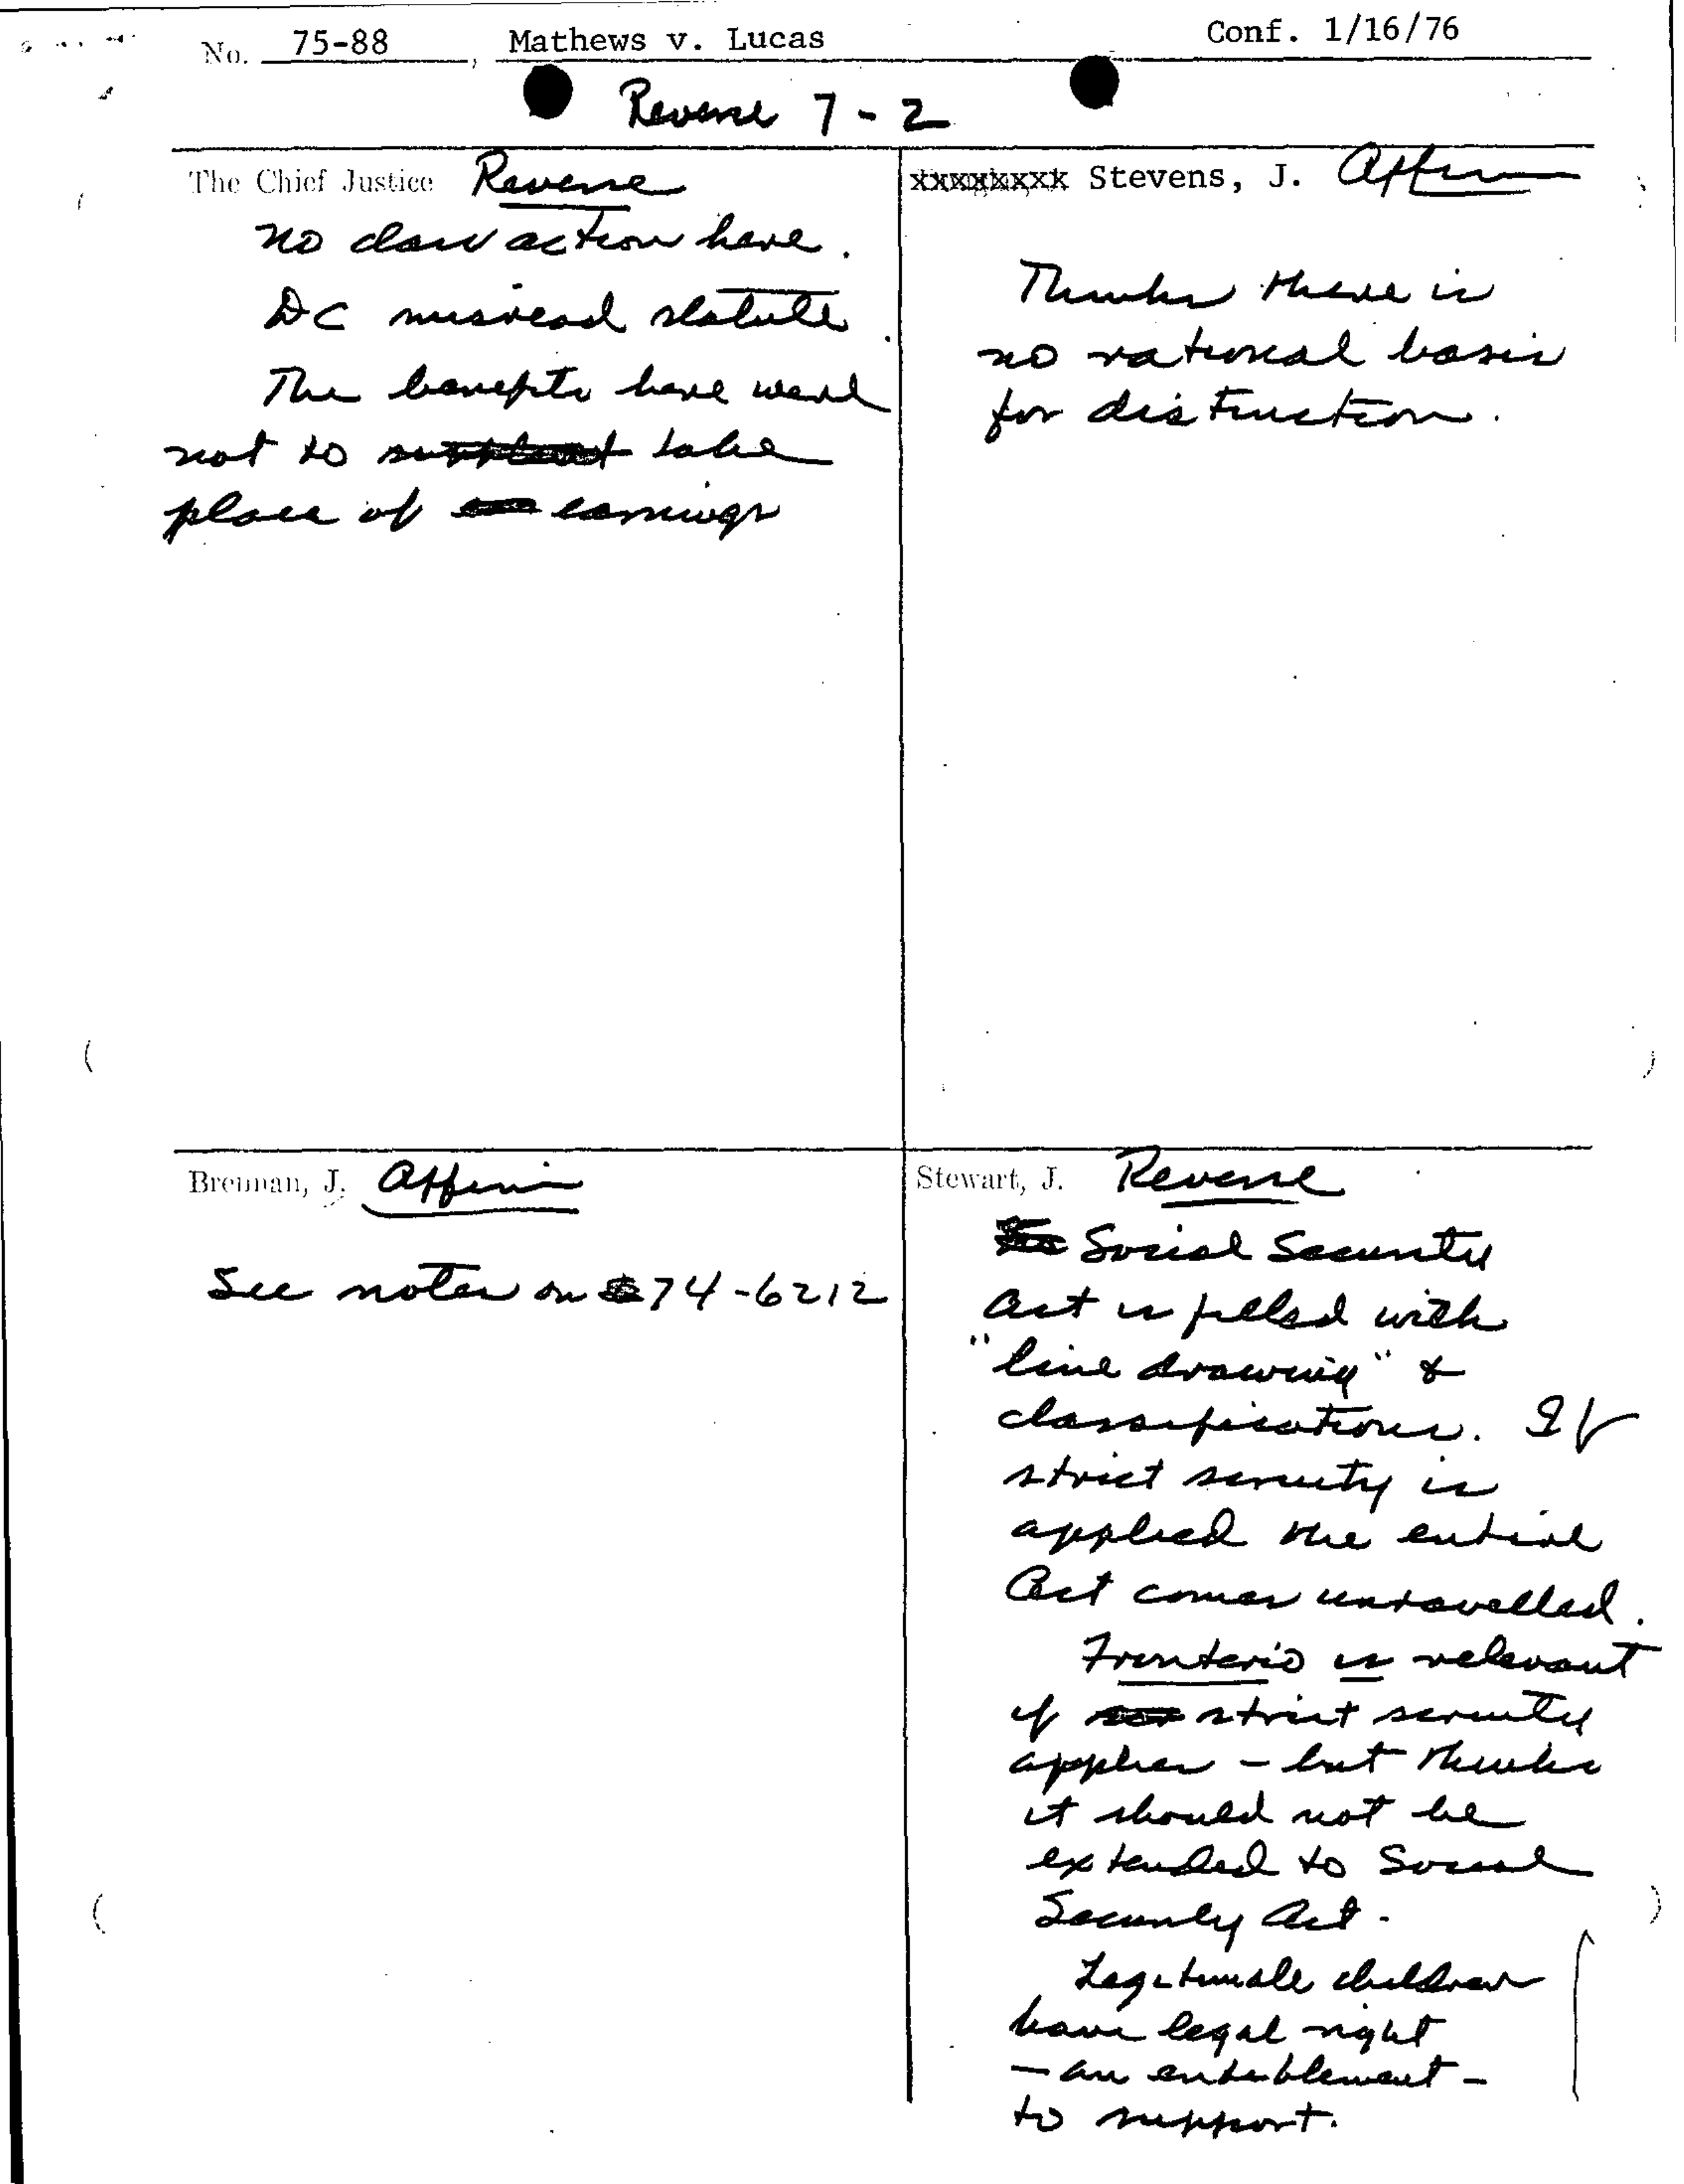 No. 75-88, Mathews v. Lucas Conf. 1/16/76
Reverse 7-2
The Chief Justice Reverse
No class action here.
DC misread statute.
The benefits here were
not to supplant take
place of earnings
xxxxxxxx Stevens, J. Affirm
Thinks there is
no rational basis
for distinction.
Brennan, J. Affirm
See notes on 74-6212
Stewart, J. Reverse
Social Security
Act is filled with
"line drawing" &
classifications. If
strict scrutiny is
applied the entire
Act comes unravelled.
Fronterio is relevant
if strict scrutiny
applies - but thinks
it should not be
extended to Social
Security Act.
Legitimate children
have legal right
- an entitlement -
to support.